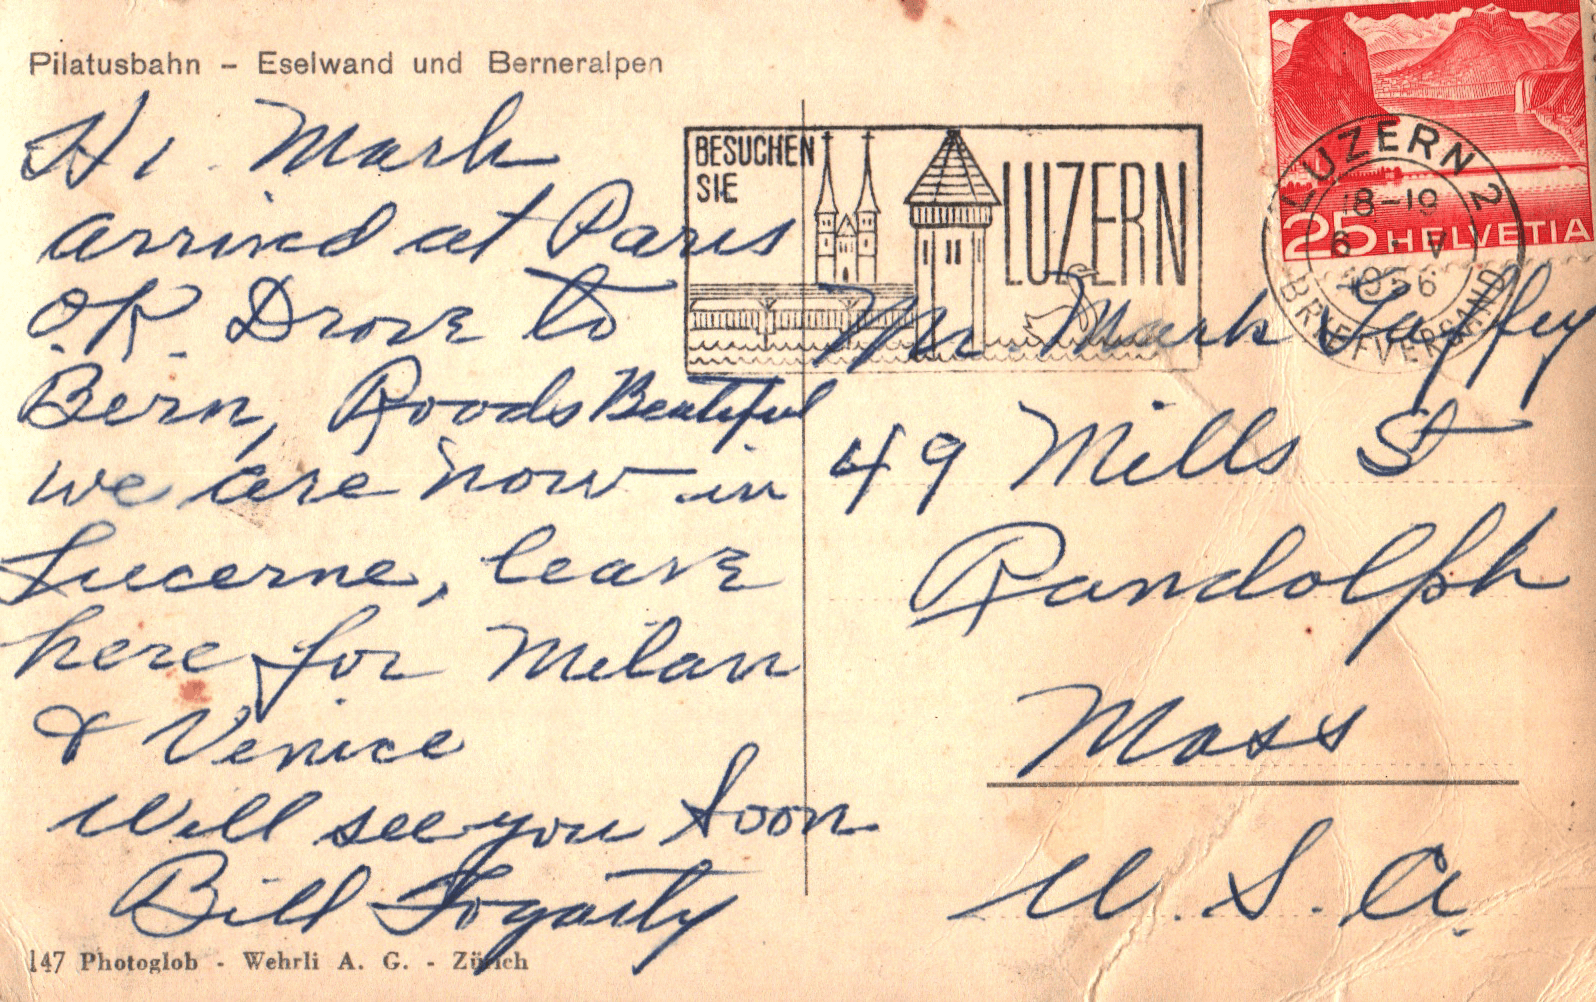 Pilatusbahn – Eselwand und Berneralpen
Hi Mark
arrived at Paris
O.K. Drove to
Bern, Roods Beatiful
we are now in
Lucerne, leave
here for Milan
& Venice
Will see you Soon
Bill Fogarty
147 Photoglob - Wehrli A. G. - Zürich
BESUCHEN
SIE
LUZERN
25 HELVETIA
LUZERN 2
18-19
6 · V
1956
BRIEFVERSAND
Mr. Mark
49 Mills St
Randolph
Mass
U. S. A.